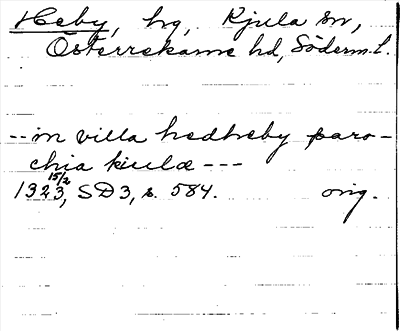 Heby, hg, Kjula sn,
Österrekarne hd, Söderm. l.
-- in villa hedheby paro-
chia kiulæ ---
15/2
1323, SD 3, s. 584. orig.